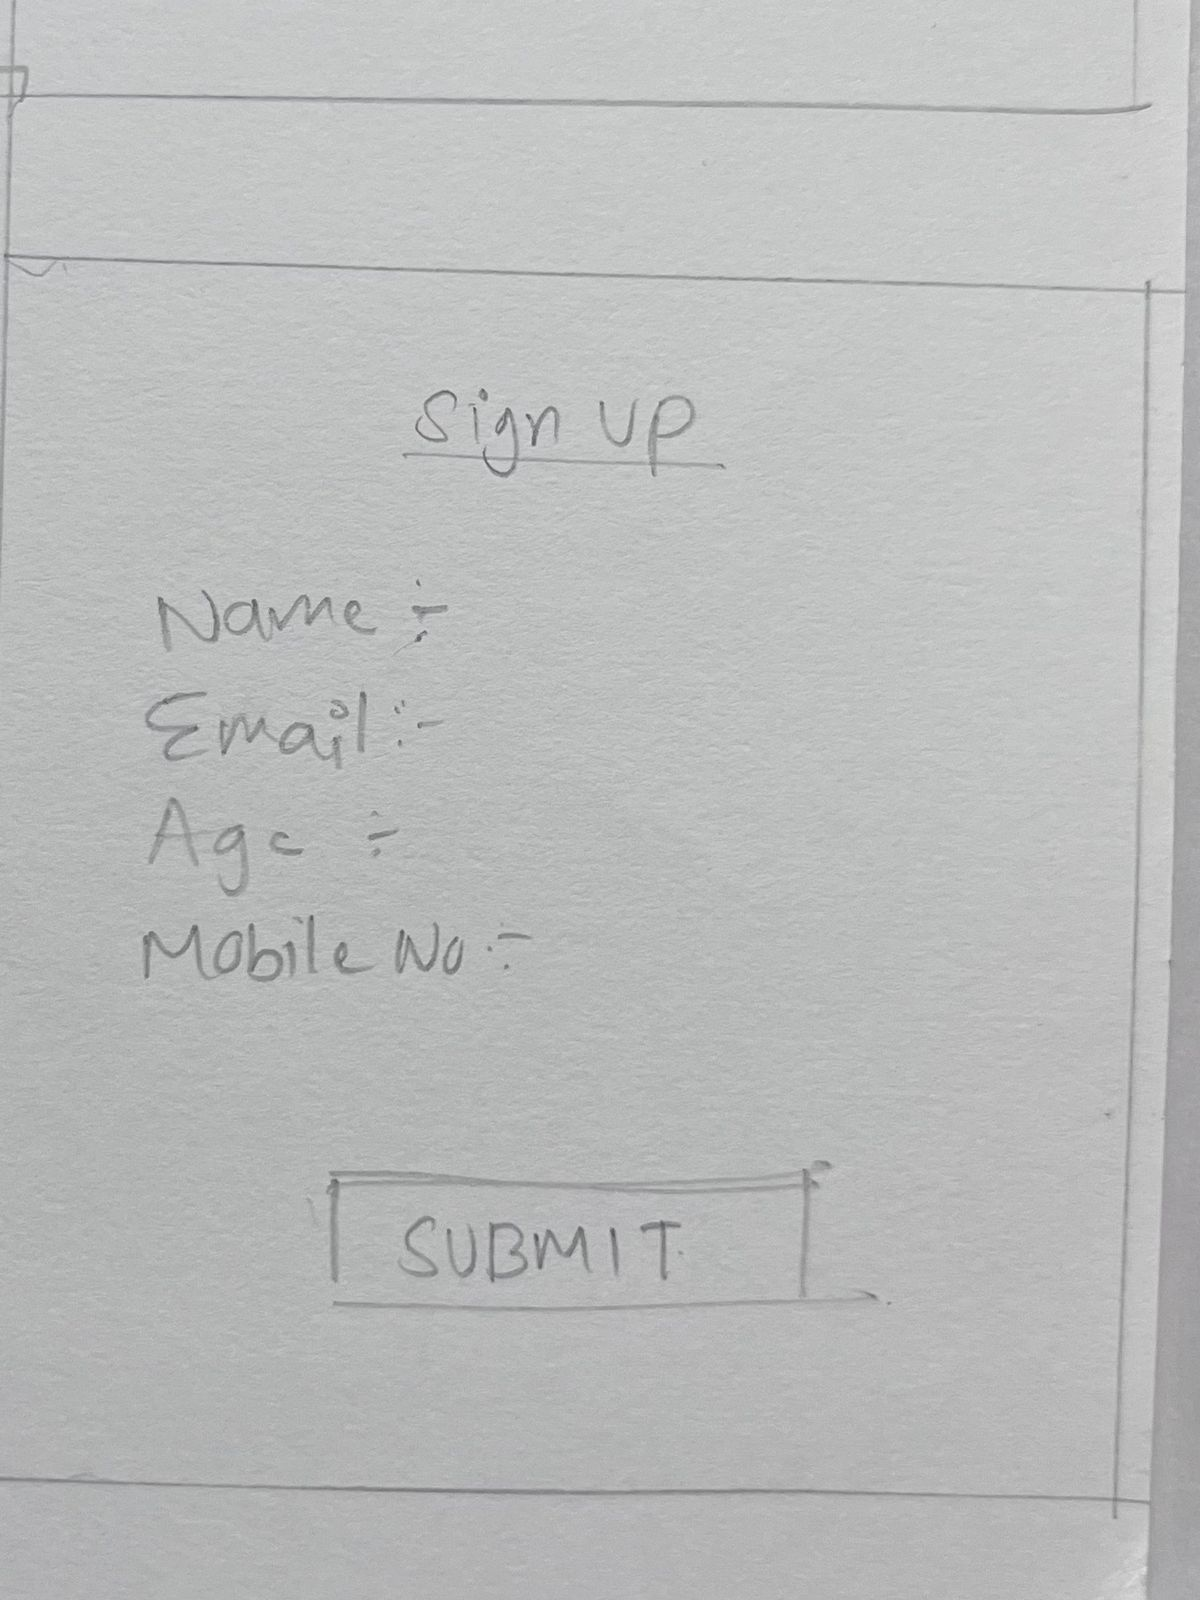 Sign UP
Name :-
Email :-
Age :-
Mobile No :-
SUBMIT